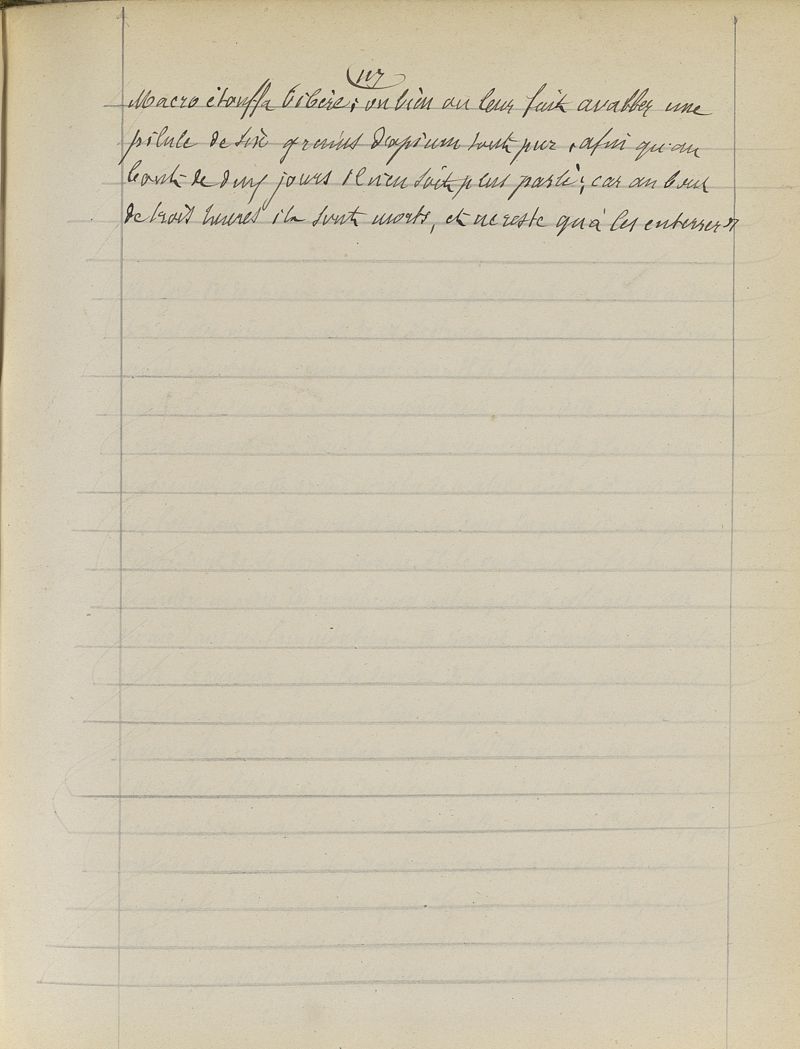 117
Macro étouffa Tibère ; ou bien on leur fait avaller une
pilule de six grains d'opium tout pur, afin qu'au
bout de deux jours il n'en soit plus parlé ; car au bout
de trois heures ils sont morts, et ne reste qu'à les enterrer »